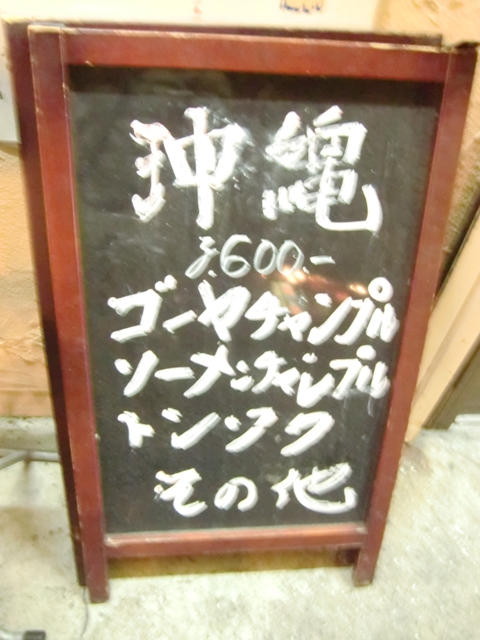 沖縄
¥600.-
ゴーヤチャンプル
ソーメンチャンプル
ドンソク
その他